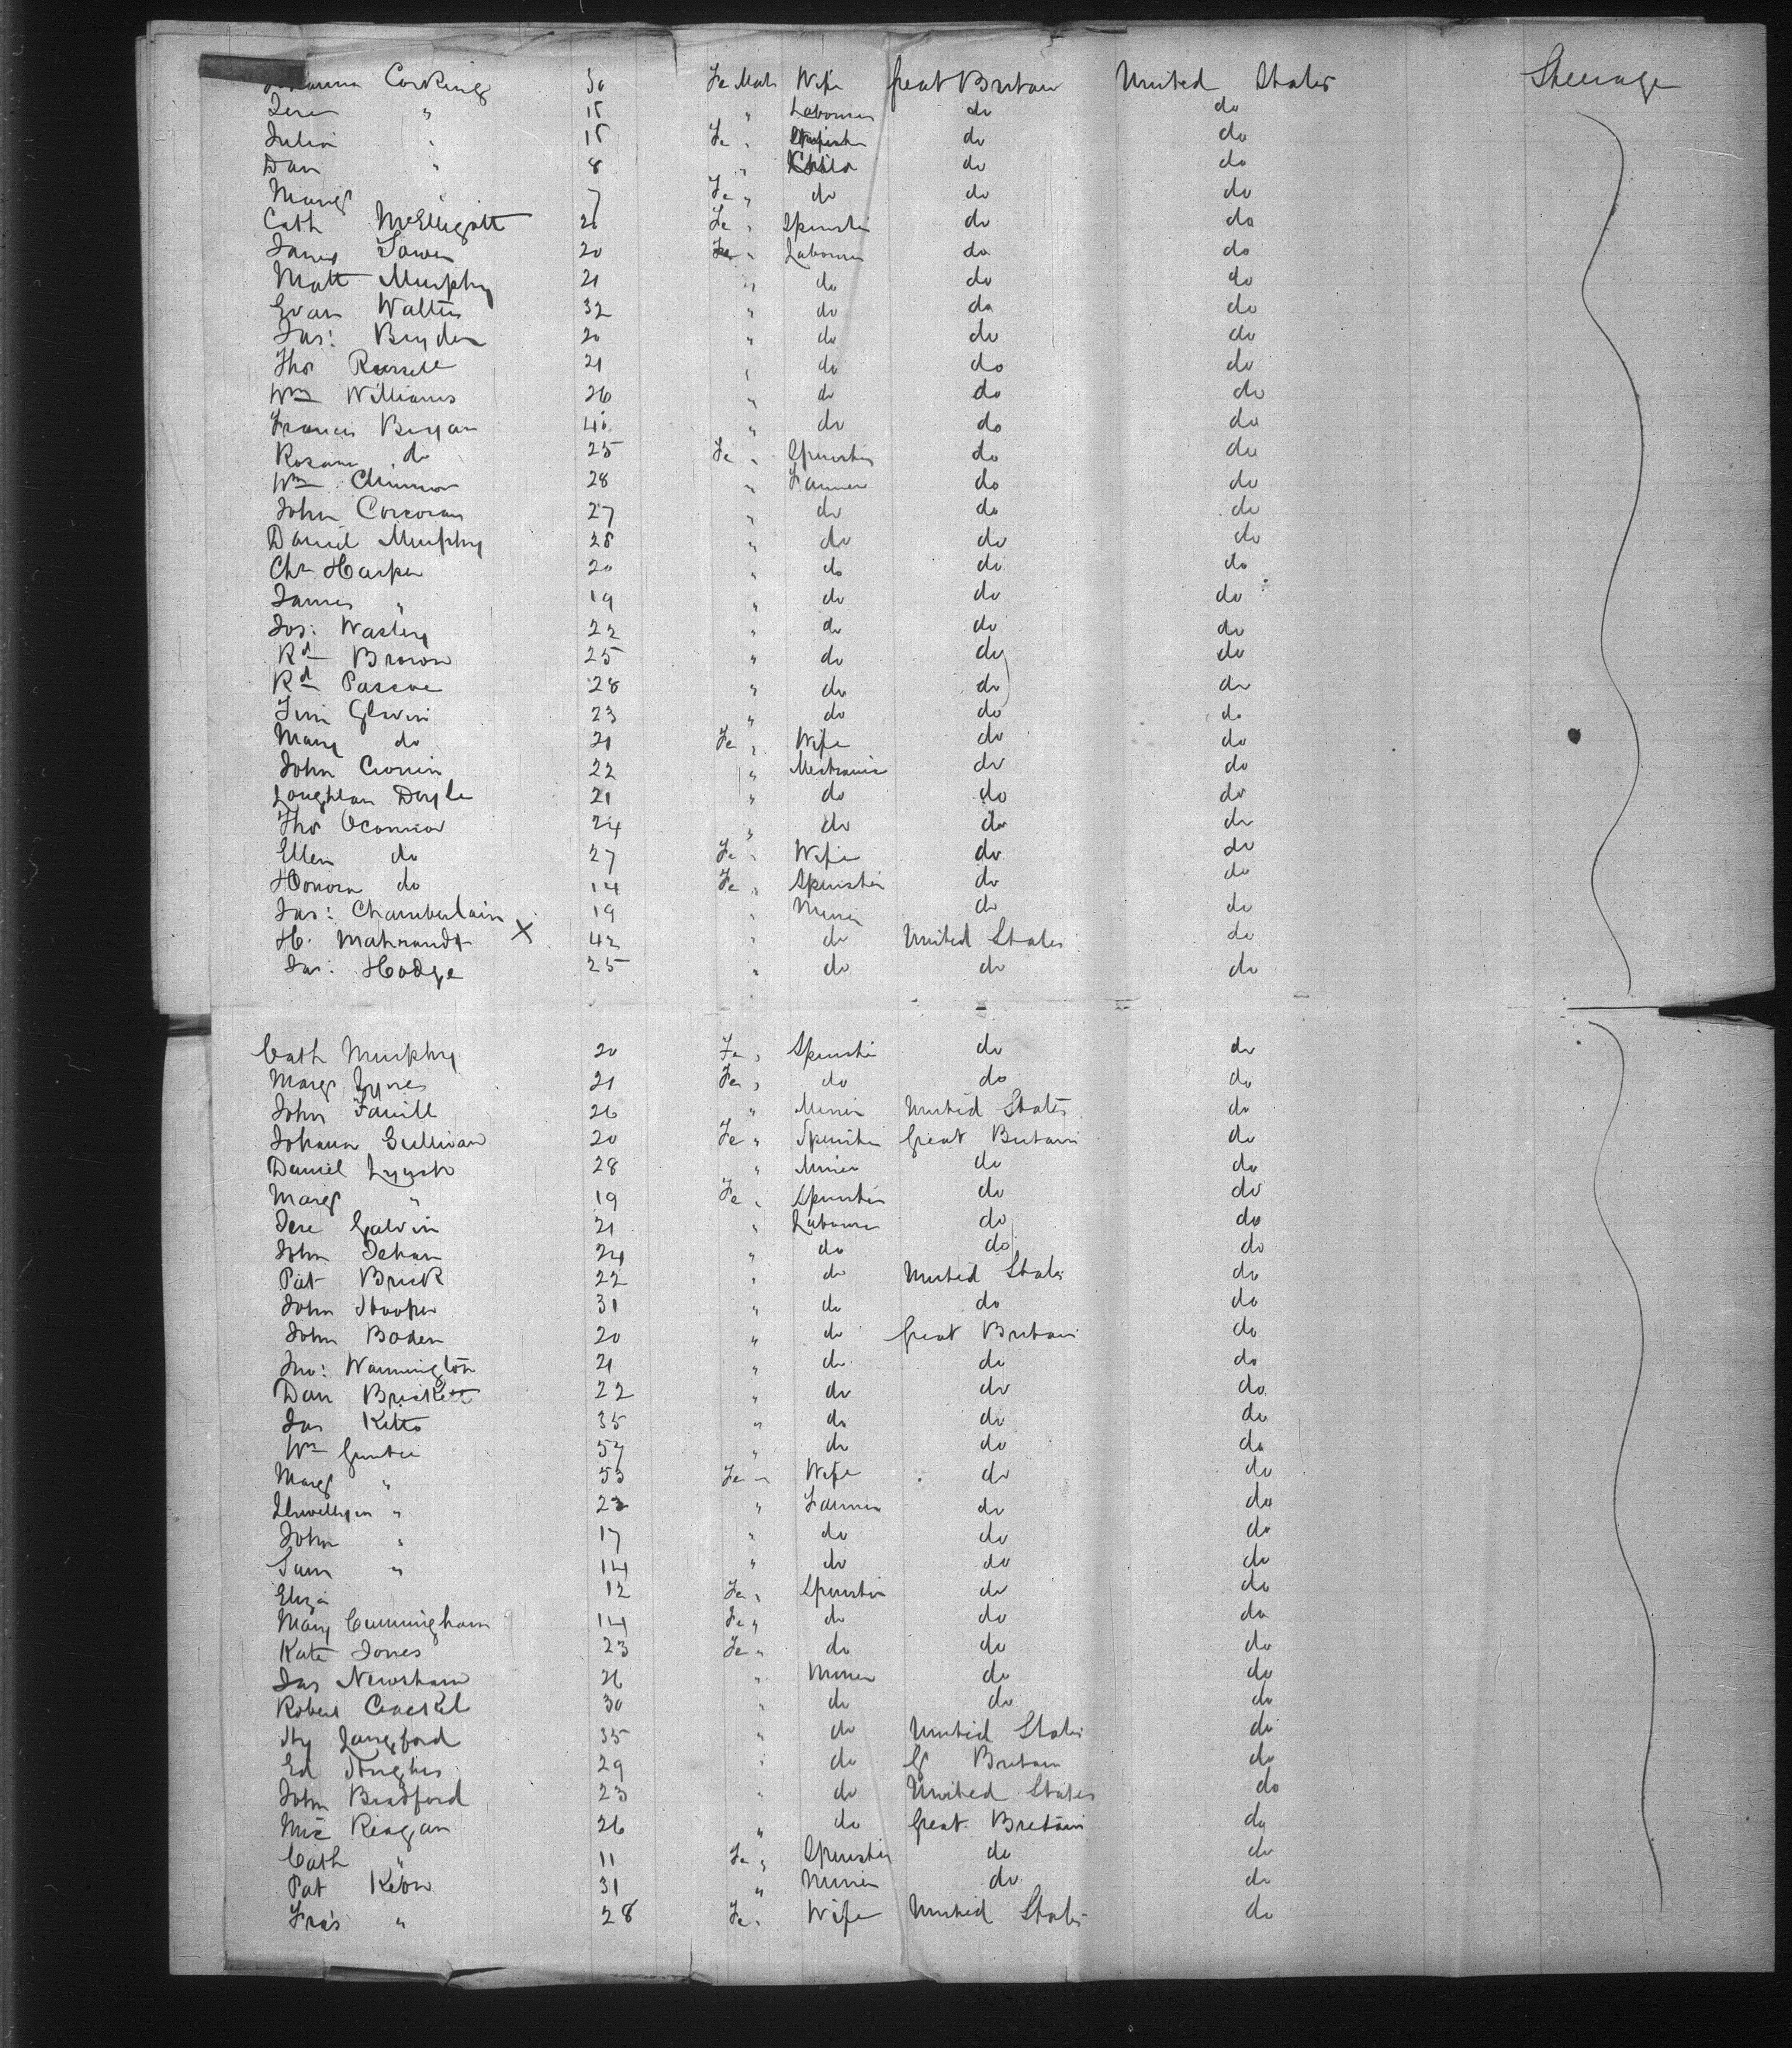 Johanna Corking 30 Fe Male Wife Great Britain United States Steerage
Jere " 15 " Labourer do do
Julia " 15 Fe " Spinster do do
Dan " 8 " Child do do
Marg 7 Fe " do do do
Cath McElligott 21 Fe " Spinster do do
James 20 " Labourer do do
Matt Murphy 21 " do do do
Evan Walters 32 " do do do
Jas: Bryden 20 " do do do
Thos Russell 21 " do do do
Wm Williams 26 " do do do
Francis Bryan 40 " do do do
Rosanna do 25 Fe " Spinster do do
Wm 28 " Farmer do do
John Corcoran 27 " do do do
Daniel Murphy 28 " do do do
Chr Harper 20 " do do do
James " 19 " do do do
Jos: Wasley 22 " do do do
Rd Brown 25 " do do do
Rd Pascoe 28 " do do do
Tim Glavin 23 " do do do
Mary do 21 Fe " Wife do do
John Cronin 22 " Mechanic do do
Loughlan Doyle 21 " do do do
Thos Oconnor 24 " do do do
Ellen do 27 Fe " Wife do do
Honora do 14 Fe " Spinster do do
Jas: Chamberlain 19 " Miner do do
H. Mahrandt X 42 " do United States do
Jas: Hodge 25 " do do do
Cath Murphy 20 Fe " Spinster do do
Marg Lynes 21 Fe " do do do
John Farrill 26 " Miner United States do
Johana Sullivan 20 Fe " Spinster Great Britain do
Daniel Lynch 28 " Miner do do
Marg " 19 Fe " Spinster do do
Jere Galvin 21 " Labourer do do
John Dehan 24 " do do do
Pat Brick 22 " do United States do
John Hooper 31 " do do do
John Boden 20 " do Great Britain do
Jno: Wannington 21 " do do do
Dan Briskett 22 " do do do
Jas Kitto 35 " do do do
Wm Gunter 57 " do do do
Marg " 53 Fe " Wife do do
Llewellyn " 23 " Farmer do do
John " 17 " do do do
Sam " 14 " do do do
Eliza 12 Fe " Spinster do do
Mary Cunningham 14 Fe " do do do
Kate Jones 23 Fe " do do do
Jas Newsham 26 " Miner do do
Robert 30 " do do do
Hy Langford 35 " do United States do
Ed 29 " do G Britain do
John Bradford 23 " do United States do
Mic Reagan 26 " do Great Britain do
Cath " 11 Fe " Spinster do do
Pat 31 " Miner do do
Fras " 28 Fe " Wife United States do